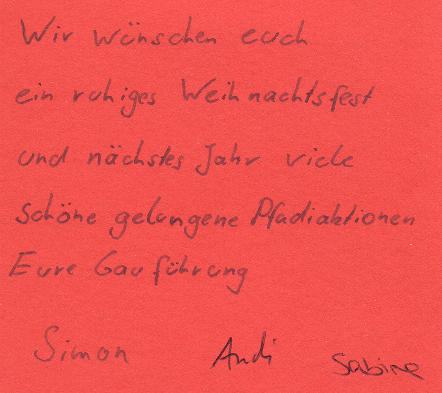 Wir wünschen euch
ein ruhiges Weihnachtsfest
und nächstes Jahr viele
schöne gelungene Pfadiaktionen
Eure Gauführung
Simon Andi Sabine